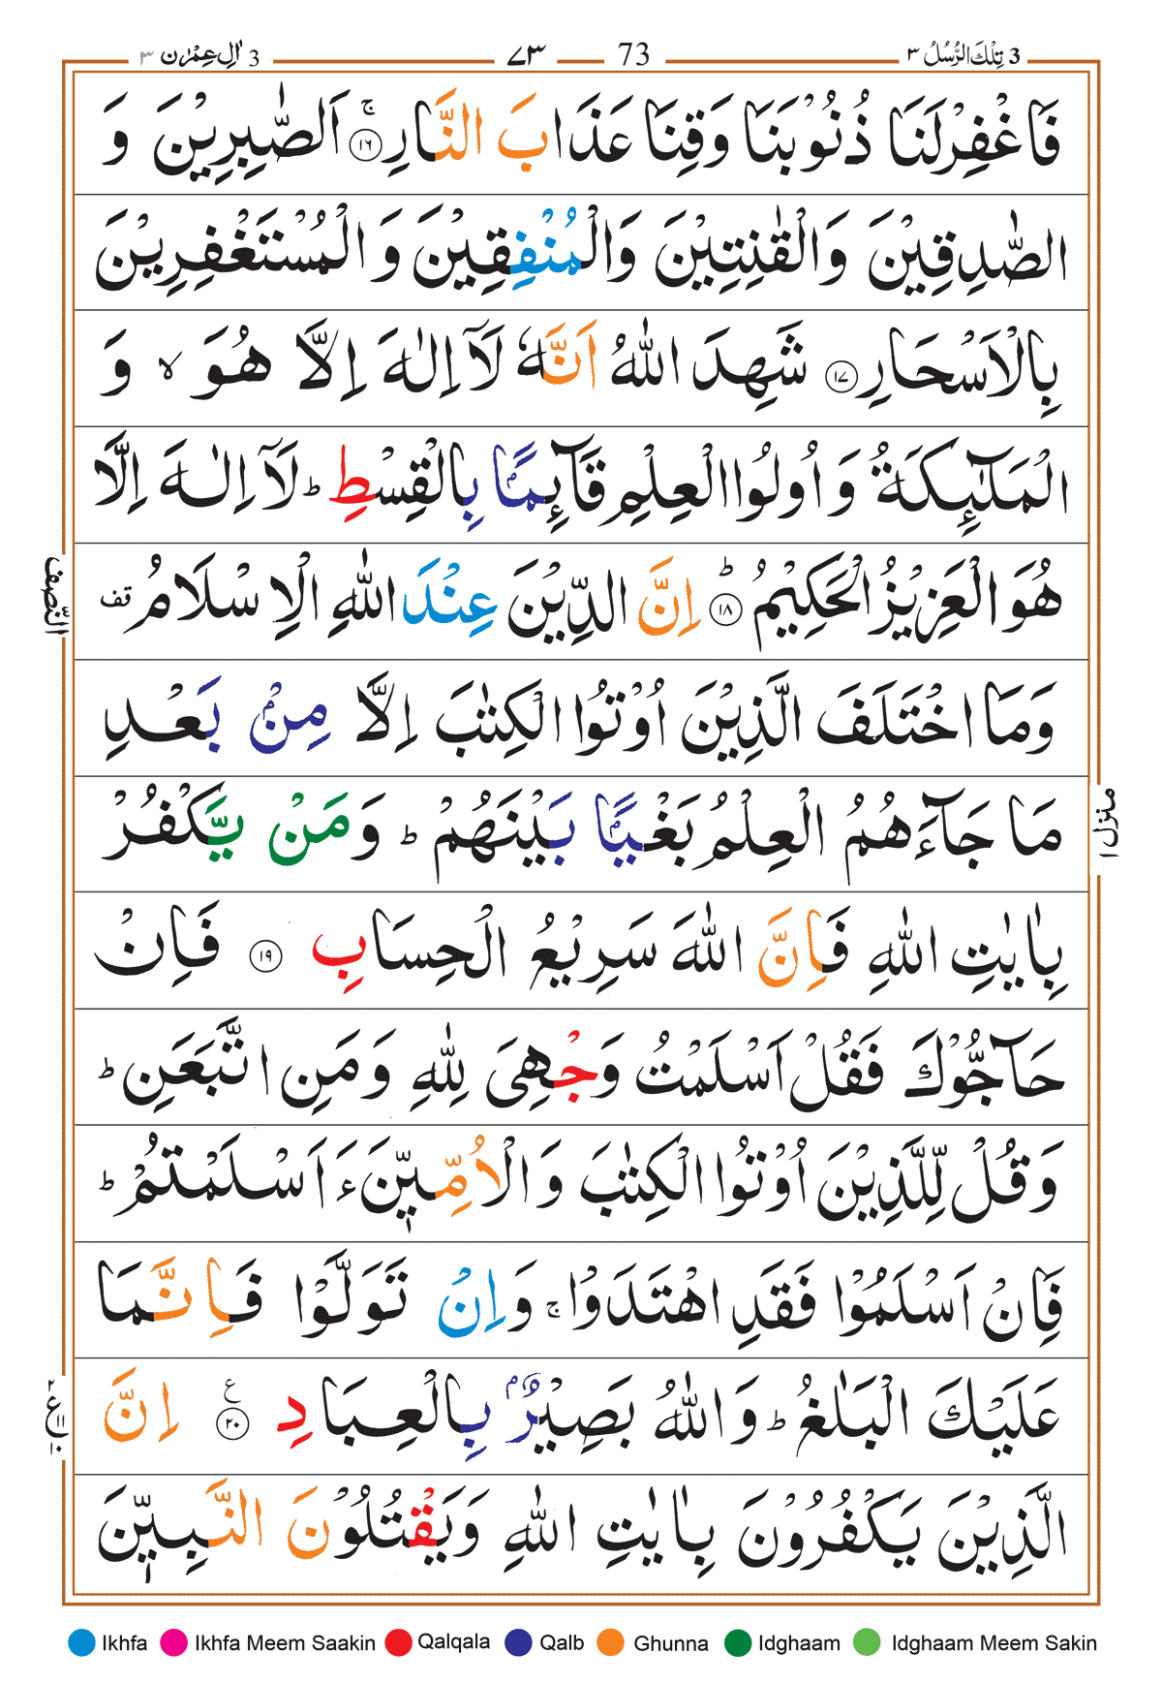 3 تِلْكَ الرُّسُلُ ۳ 73 ۷۳ 3 اٰلِ عِمْرٰن ۳
فَاغْفِرْلَنَا ذُنُوْبَنَا وَقِنَا عَذَابَ النَّارِ ۚ‏﴿۱۶﴾ اَلصّٰبِرِيْنَ وَ
الصّٰدِقِيْنَ وَالْقٰنِتِيْنَ وَالْمُنْفِقِيْنَ وَ الْمُسْتَغْفِرِيْنَ
بِالْاَسْحَارِ ﴿۱۷﴾ شَهِدَ اللّٰهُ اَنَّهٗ لَاۤ اِلٰهَ اِلَّا هُوَ ۙ وَ
الْمَلٰٓئِكَةُ وَ اُولُوا الْعِلْمِ قَآئِمًاۢ بِالْقِسْطِ ؕ لَاۤ اِلٰهَ اِلَّا
هُوَ الْعَزِيْزُ الْحَكِيْمُ ؕ ﴿۱۸﴾ اِنَّ الدِّيْنَ عِنْدَ اللّٰهِ الْاِسْلَامُ قف
النِّصْف
وَمَا اخْتَلَفَ الَّذِيْنَ اُوْتُوا الْكِتٰبَ اِلَّا مِنْۢ بَعْدِ
مَا جَآءَهُمُ الْعِلْمُ بَغْيًاۢ بَيْنَهُمْ ؕ وَمَنْ يَّكْفُرْ
منزل ۱
بِاٰيٰتِ اللّٰهِ فَاِنَّ اللّٰهَ سَرِيْعُ الْحِسَابِ ﴿۱۹﴾ فَاِنْ
حَآجُّوْكَ فَقُلْ اَسْلَمْتُ وَجْهِىَ لِلّٰهِ وَمَنِ اتَّبَعَنِ ؕ
وَقُلْ لِّلَّذِيْنَ اُوْتُوا الْكِتٰبَ وَالْاُمِّيّٖنَ ءَاَسْلَمْتُمْ ؕ
فَاِنْ اَسْلَمُوْا فَقَدِ اهْتَدَوْا ۚ وَاِنْ تَوَلَّوْا فَاِنَّمَا
عَلَيْكَ الْبَلٰغُ ؕ وَاللّٰهُ بَصِيْرٌۢ بِالْعِبَادِ ﴿۲۰﴾ ع اِنَّ
الَّذِيْنَ يَكْفُرُوْنَ بِاٰيٰتِ اللّٰهِ وَيَقْتُلُوْنَ النَّبِيّٖنَ
Ikhfa Ikhfa Meem Saakin Qalqala Qalb Ghunna Idghaam Idghaam Meem Sakin